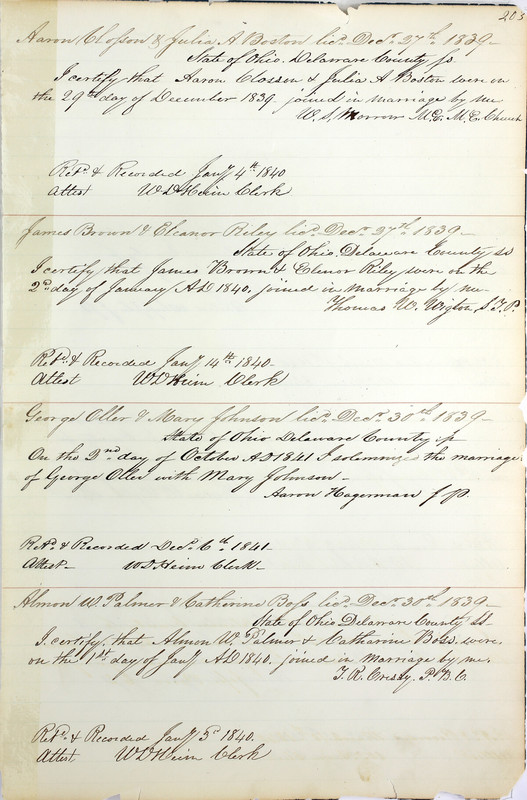 203
Aaron Closson & Julia A Boston licd. Decr. 27th. 1839-
State of Ohio. Delaware County ss.
I certify that Aaron Closson & Julia A Boston were on
the 29th day of December 1839. joined in marriage by me
W. S. Morrow M.G. M.E. Church
Retd. & Recorded Jany. 4th 1840
Attest W D Heim Clerk
James Brown & Eleanor Riley licd. Decr. 27th. 1839-
State of Ohio. Delaware County ss
I certify that James Brown & Elenor Riley were on the
2nd day of January AD 1840. joined in marriage by me
Thomas W. Wigton, S.J.P.
Retd. & Recorded Jany. 14th. 1840-
Attest W D Heim Clerk
George Oller & Mary Johnson licd. Decr. 30th. 1839-
State of Ohio Delaware County ss
On the 2nd day of October AD 1841 I solemnized the marriage
of George Oller with Mary Johnson-
Aaron Hagerman J P.
Retd. & Recorded Decr. 6th. 1841-
Attest- W D Heim Clerk-
Almon W. Palmer & Catherine Boss licd. Decr. 30th. 1839-
State of Ohio Delaware County ss
I certify that Almon W. Palmer & Catharine Boss were.
on the 1st day of Jany AD 1840. joined in marriage by me.
T. R. Cressy. P. B. C.
Retd. & Recorded Jany 5th 1840.
Attest W D Heim Clerk